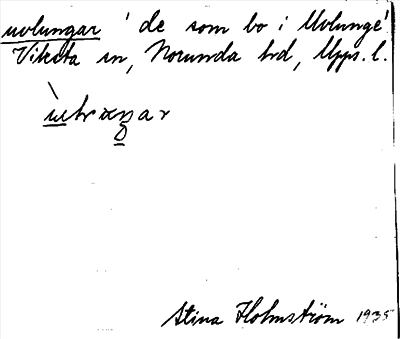 uvlungar 'de som bo i Uvlunge'
Viksta sn, Norunda hd, Upps. l.
Stina Holmström 1935